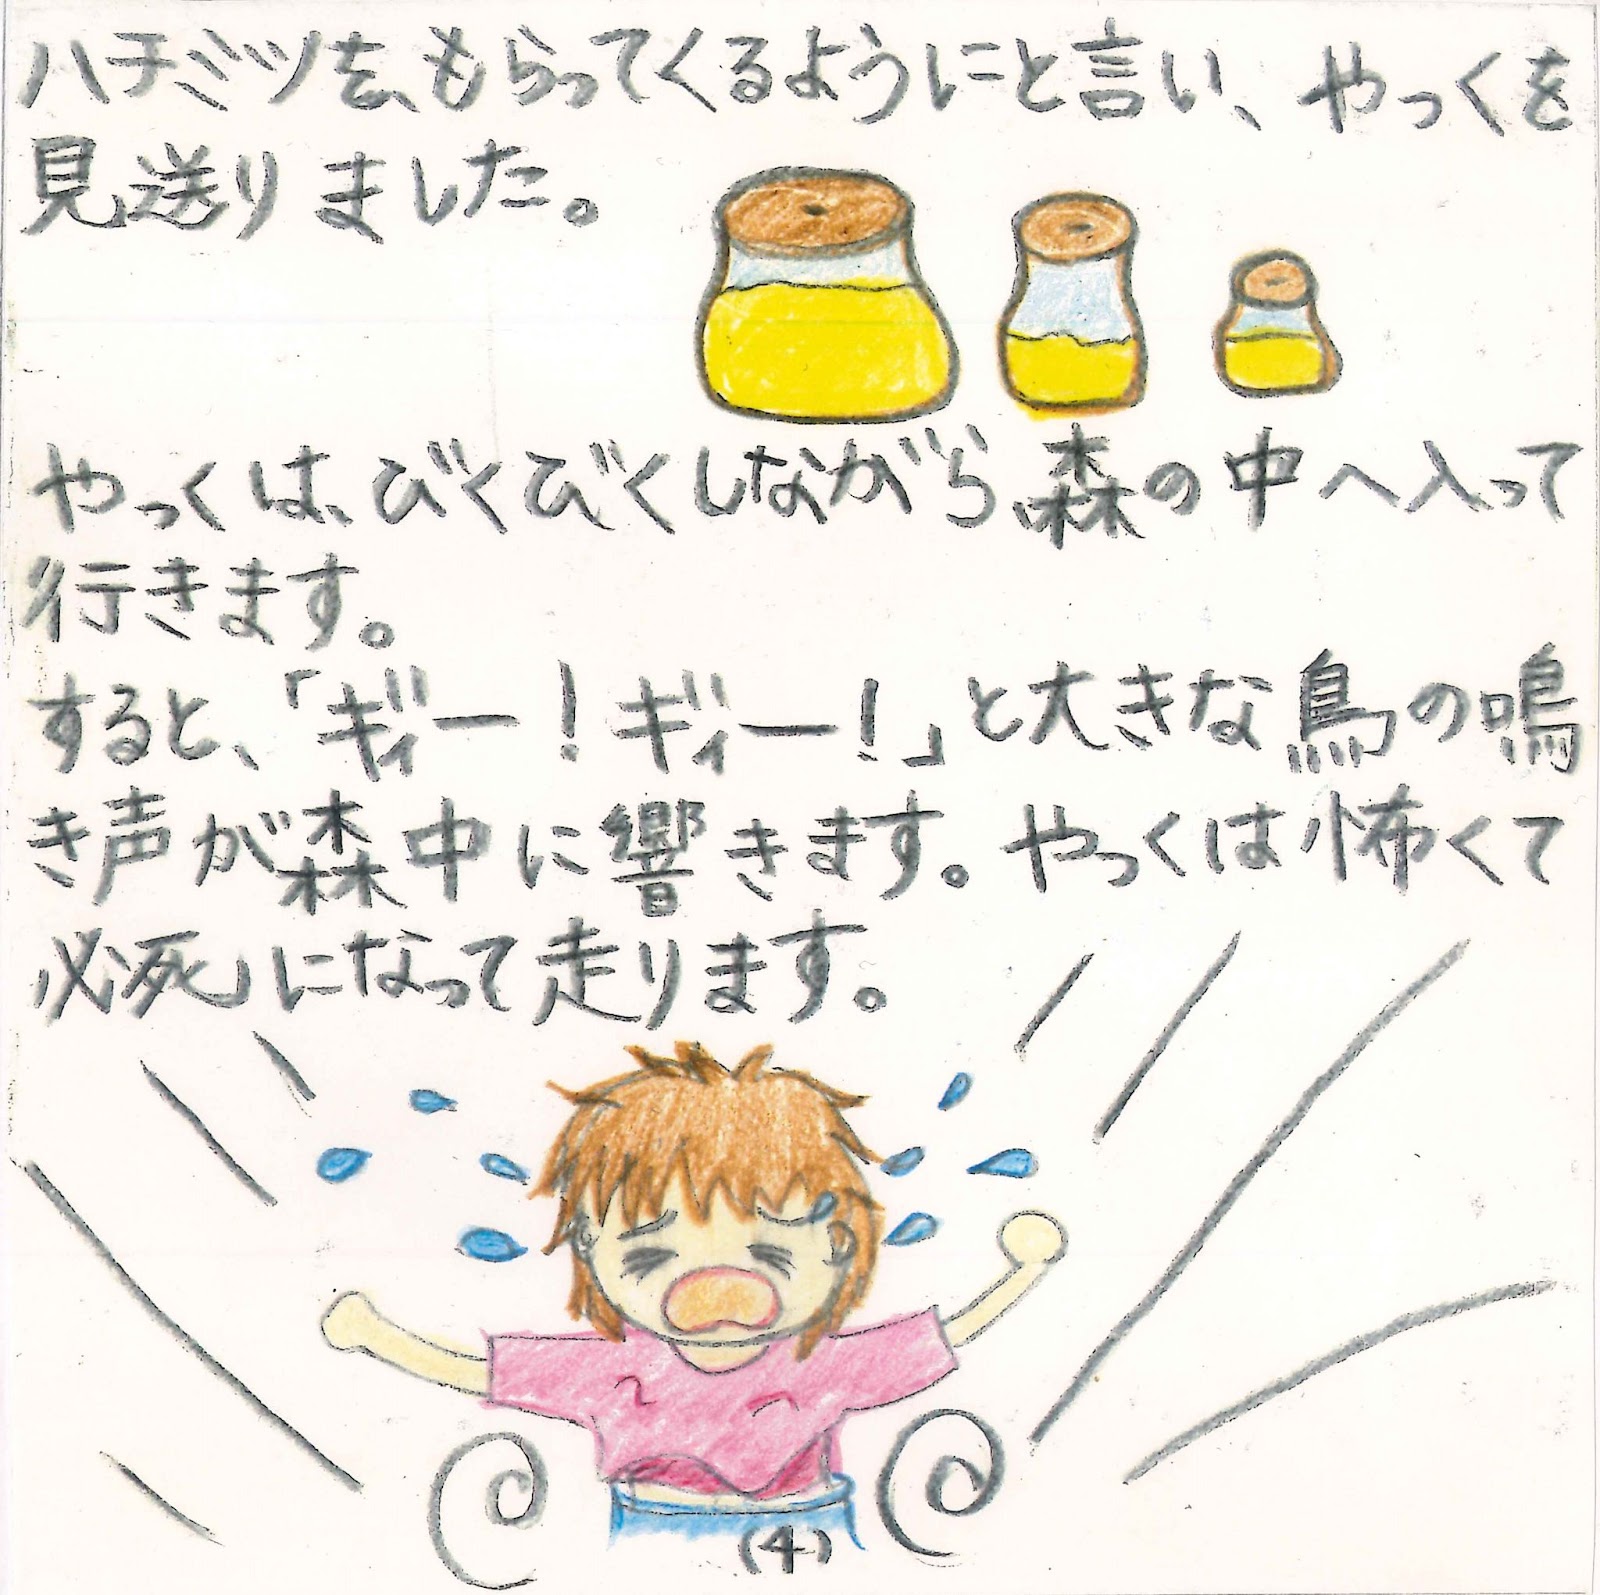 ハチミツを、もらってくるようにと言い、やっくを
見送りました。
やっくは、びくびくしながら、森の中へ入って
行きます。
すると、「ギィー！ギィー！」と大きな鳥の鳴
き声が森中に響きます。やっくは怖くて
必死になって走ります。
(4)